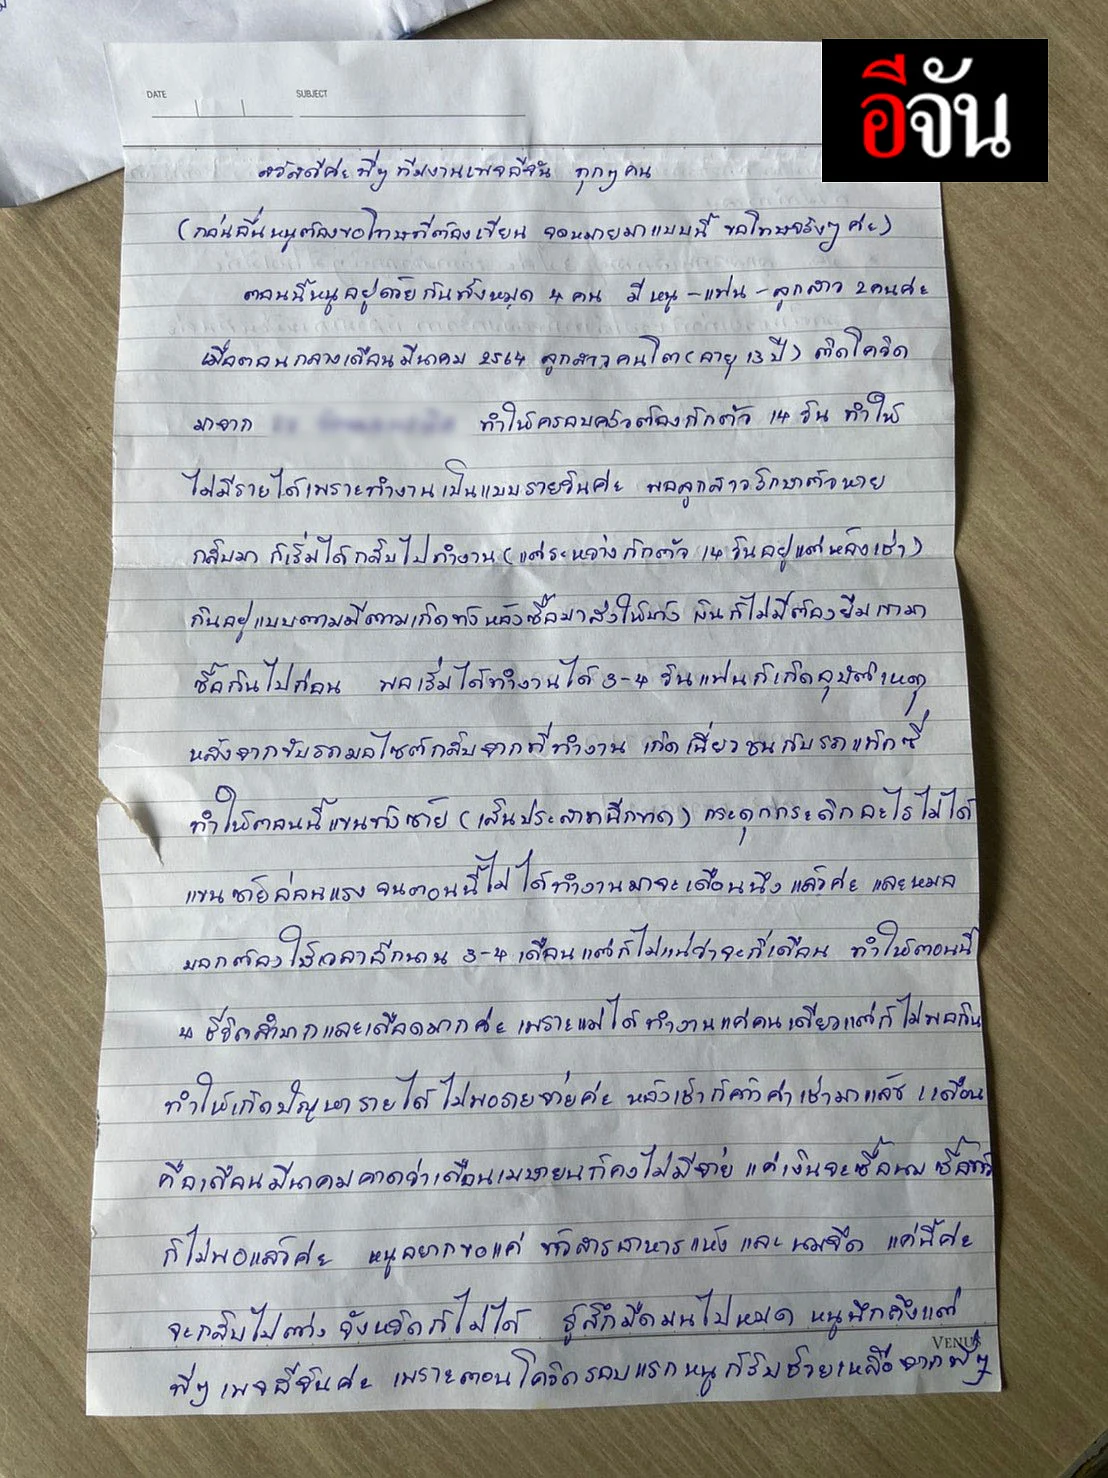 อีจัน
DATE SUBJECT
สวัสดีค่ะพี่ๆทีมงานเพจอีจัน ทุกๆคน
(ก่อนอื่นหนูต้องขอโทษที่ต้องเขียน จดหมายมาแบบนี้ ขอโทษจริงๆค่ะ)
ตอนนี้หนูอยู่ด้วยกันทั้งหมด 4 คน มีหนู-แฟน-ลูกสาว 2คนค่ะ
เมื่อตอนกลางเดือนมีนาคม 2564 ลูกสาวคนโต(อายุ 13ปี) ติดโควิด
มาจาก ทำให้ครอบครัวต้องกักตัว 14 วัน ทำให้
ไม่มีรายได้เพราะทำงานเป็นแบบรายวันค่ะ พอลูกสาวรักษาตัวหาย
กลับมา ก็เริ่มได้กลับไปทำงาน(แต่ระหว่างกักตัว 14 วันอยู่แต่ห้องเช่า)
กินอยู่แบบตามมีตามเกิดทางห้องซื้อมาส่งให้บ้าง เงินก็ไม่มีต้องยืมเขามา
ซื้อกินไปก่อน พอเริ่มได้ทำงานได้ 3-4 วันแฟนก็เกิดอุบัติเหตุ
หลังจากขับรถมอไซต์กลับจากที่ทำงาน เกิดเฉี่ยวชนกับรถแท็กซี่
ทำให้ตอนนี้แขนข้างซ้าย (เส้นประสาทฉีกขาด) กระดุกกระดิกอะไรไม่ได้
แขนซ้ายอ่อนแรง จนตอนนี้ไม่ได้ทำงานมาจะเดือนนึงแล้วค่ะ และหมอ
บอกต้องใช้เวลาอีกนาน 3-4 เดือนแต่ก็ไม่แน่ว่าจะกี่เดือน ทำให้ตอนนี้
4 ชีวิตลำบากและเดือดมากค่ะ เพราะแม่ได้ทำงานแค่คนเดียวแต่ก็ไม่พอกิน
ทำให้เกิดปัญหารายได้ไม่พอรายจ่ายค่ะ ห้องเช่าก็ค้างค่าเช่ามาแล้ว 1 เดือน
คือเดือนมีนาคมคาดว่าเดือนเมษายนก็คงไม่มีจ่าย แค่เงินจะซื้อนม ซื้อข้าว
ก็ไม่พอแล้วค่ะ หนูอยากขอแค่ ข้าวสารอาหารแห้ง และ นมจืด แค่นี้ค่ะ
จะกลับไปต่างจังหวัดก็ไม่ได้ รู้สึกมืดมนไปหมด หนูนึกถึงแต่
VENUS
พี่ๆเพจอีจันค่ะ เพราะตอนโควิดรอบแรกหนูก็รับช่วยเหลือจากพี่ๆ